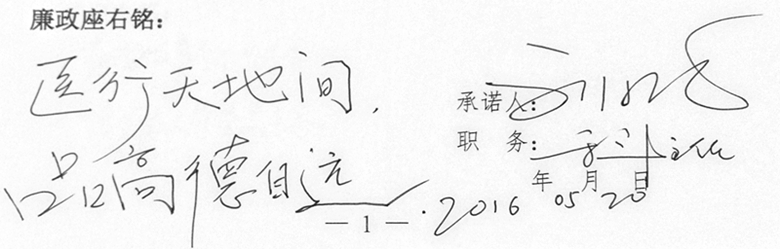 廉政座右铭：
医行天地间，
品高德自远.
承诺人：
职 务： 主任
年 月 日
2016 05 20
— 1 —